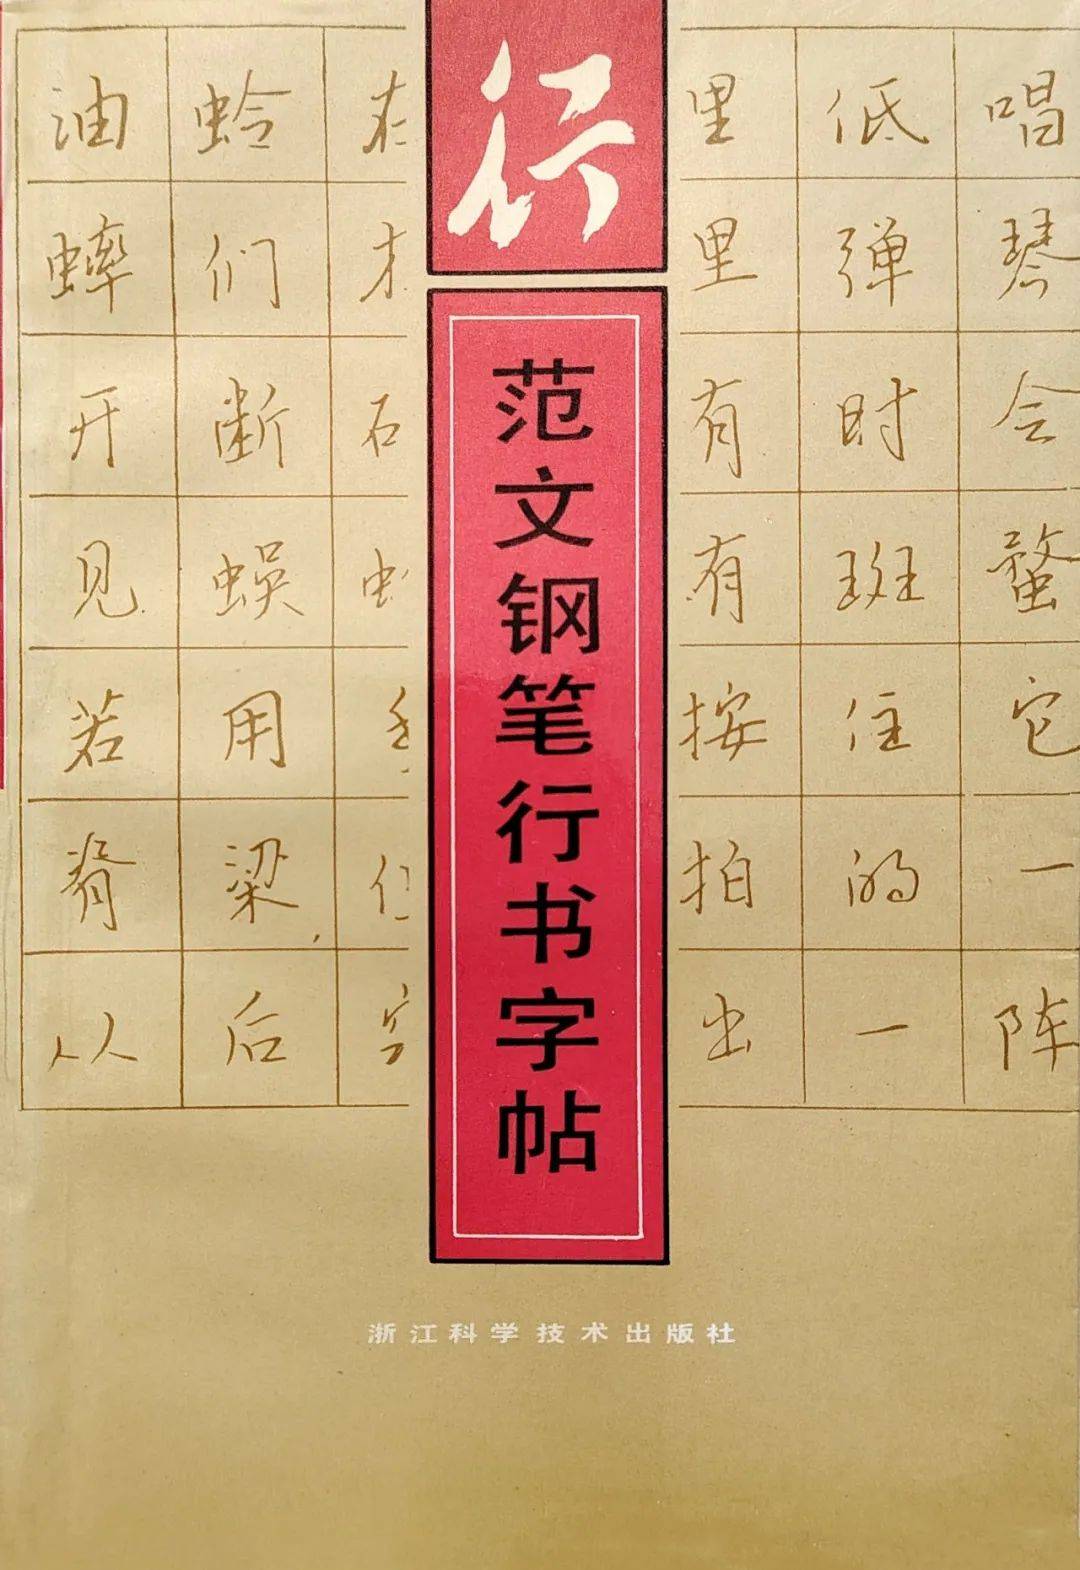 行
范文钢笔行书字帖
油蛉 里低唱
蟀们 里弹琴
开断 有时会
见蜈 有斑蝥
若用 按住它
脊梁, 拍的一
从后 出一阵
浙江科学技术出版社